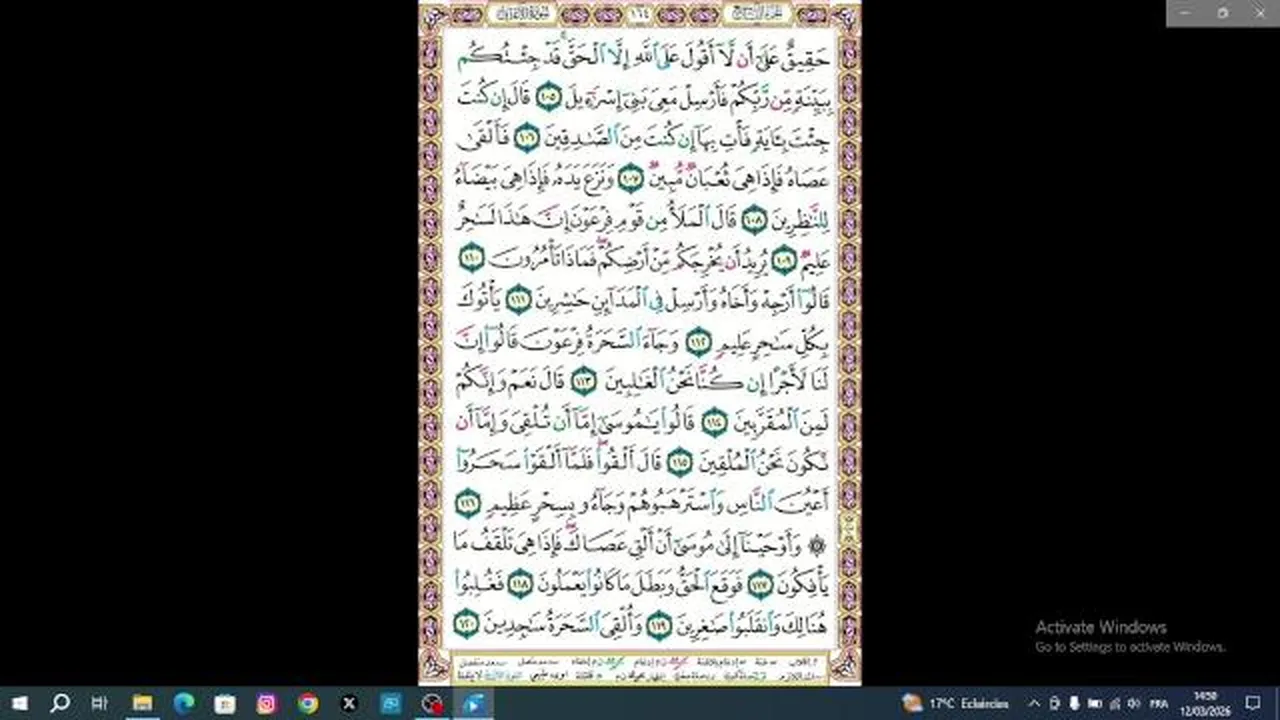 سورة الأعراف
١٦٤
الجزء التاسع
حَقِيقٌ عَلَىٰٓ أَن لَّآ أَقُولَ عَلَى ٱللَّهِ إِلَّا ٱلْحَقَّ ۚ قَدْ جِئْتُكُم
بِبَيِّنَةٍ مِّن رَّبِّكُمْ فَأَرْسِلْ مَعِىَ بَنِىٓ إِسْرَٰٓءِيلَ ١٠٥ قَالَ إِن كُنتَ
جِئْتَ بِـَٔايَةٍ فَأْتِ بِهَآ إِن كُنتَ مِنَ ٱلصَّـٰدِقِينَ ١٠٦ فَأَلْقَىٰ
عَصَاهُ فَإِذَا هِىَ ثُعْبَانٌ مُّبِينٌ ١٠٧ وَنَزَعَ يَدَهُۥ فَإِذَا هِىَ بَيْضَآءُ
لِلنَّـٰظِرِينَ ١٠٨ قَالَ ٱلْمَلَأُ مِن قَوْمِ فِرْعَوْنَ إِنَّ هَـٰذَا لَسَـٰحِرٌ
عَلِيمٌ ١٠٩ يُرِيدُ أَن يُخْرِجَكُم مِّنْ أَرْضِكُمْ ۖ فَمَاذَا تَأْمُرُونَ ١١٠
قَالُوٓا۟ أَرْجِهْ وَأَخَاهُ وَأَرْسِلْ فِى ٱلْمَدَآئِنِ حَـٰشِرِينَ ١١١ يَأْتُوكَ
بِكُلِّ سَـٰحِرٍ عَلِيمٍ ١١٢ وَجَآءَ ٱلسَّحَرَةُ فِرْعَوْنَ قَالُوٓا۟ إِنَّ
لَنَا لَأَجْرًا إِن كُنَّا نَحْنُ ٱلْغَـٰلِبِينَ ١١٣ قَالَ نَعَمْ وَإِنَّكُمْ
لَمِنَ ٱلْمُقَرَّبِينَ ١١٤ قَالُوا۟ يَـٰمُوسَىٰٓ إِمَّآ أَن تُلْقِىَ وَإِمَّآ أَن
نَّكُونَ نَحْنُ ٱلْمُلْقِينَ ١١٥ قَالَ أَلْقُوا۟ ۖ فَلَمَّآ أَلْقَوْا۟ سَحَرُوٓا۟
أَعْيُنَ ٱلنَّاسِ وَٱسْتَرْهَبُوهُمْ وَجَآءُو بِسِحْرٍ عَظِيمٍ ١١٦
۞ وَأَوْحَيْنَآ إِلَىٰ مُوسَىٰٓ أَنْ أَلْقِ عَصَاكَ ۖ فَإِذَا هِىَ تَلْقَفُ مَا
يَأْفِكُونَ ١١٧ فَوَقَعَ ٱلْحَقُّ وَبَطَلَ مَا كَانُوا۟ يَعْمَلُونَ ١١٨ فَغُلِبُوا۟
هُنَالِكَ وَٱنقَلَبُوا۟ صَـٰغِرِينَ ١١٩ وَأُلْقِىَ ٱلسَّحَرَةُ سَـٰجِدِينَ ١٢٠
Activate Windows
Go to Settings to activate Windows.
17°C Eclaircies
FRA
14:50
12/03/2026